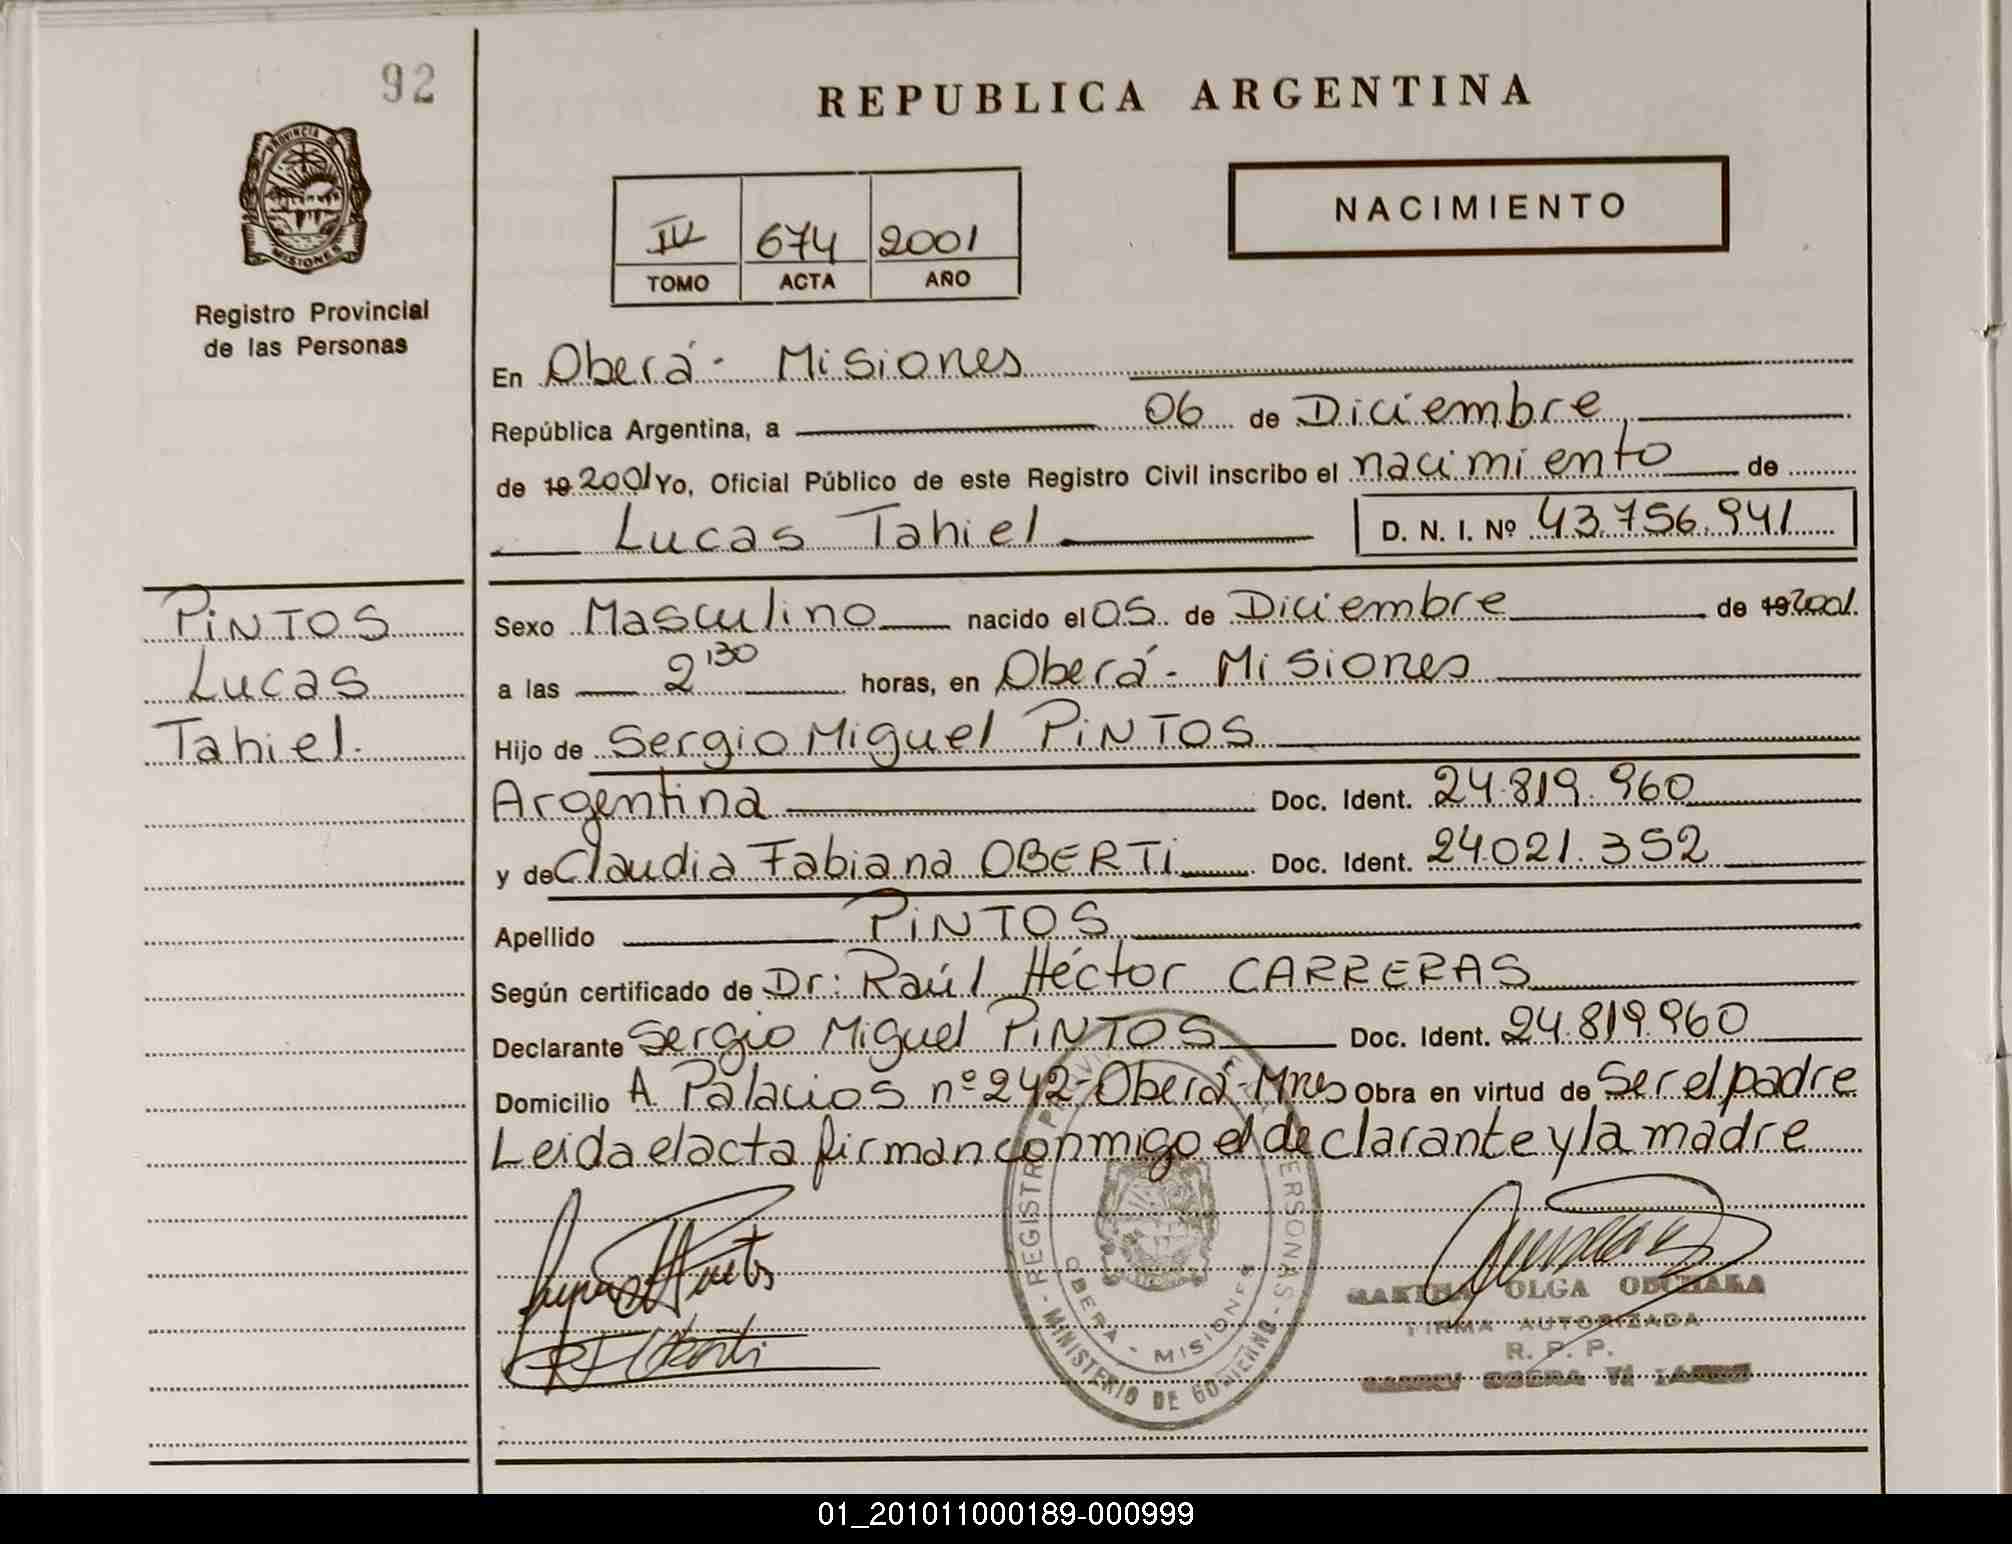 92
REPUBLICA ARGENTINA
PROVINCIA DE
MISIONES
Registro Provincial
de las Personas
IV 674 2001
TOMO ACTA AÑO
NACIMIENTO
En Oberá - Misiones
República Argentina, a 06 de Diciembre
de 19 2001 Yo, Oficial Público de este Registro Civil inscribo el nacimiento de
Lucas Tahiel D. N. I. Nº 43.756.941
PiNTOS
Lucas
Tahiel.
Sexo Masculino nacido el 05 de Diciembre de 19 2001.
a las 2'30 horas, en Oberá - Misiones
Hijo de Sergio Miguel PiNTOS
Argentina Doc. Ident. 24.819.960
y de Claudia Fabiana OBERTi Doc. Ident. 24.021.352
Apellido PiNTOS
Según certificado de Dr: Raúl Héctor CARRERAS
Declarante Sergio Miguel PiNTOS Doc. Ident. 24.819.960
Domicilio A. Palacios nº 242 - Oberá - Mnes Obra en virtud de Ser el padre
Leida el acta firman conmigo el declarante y la madre
REGISTRO PROVINCIAL DE LAS PERSONAS - MINISTERIO DE GOBIERNO -
OBERA - MISIONES
OLGA
FIRMA AUTORIZADA
R. P. P.
01_201011000189-000999